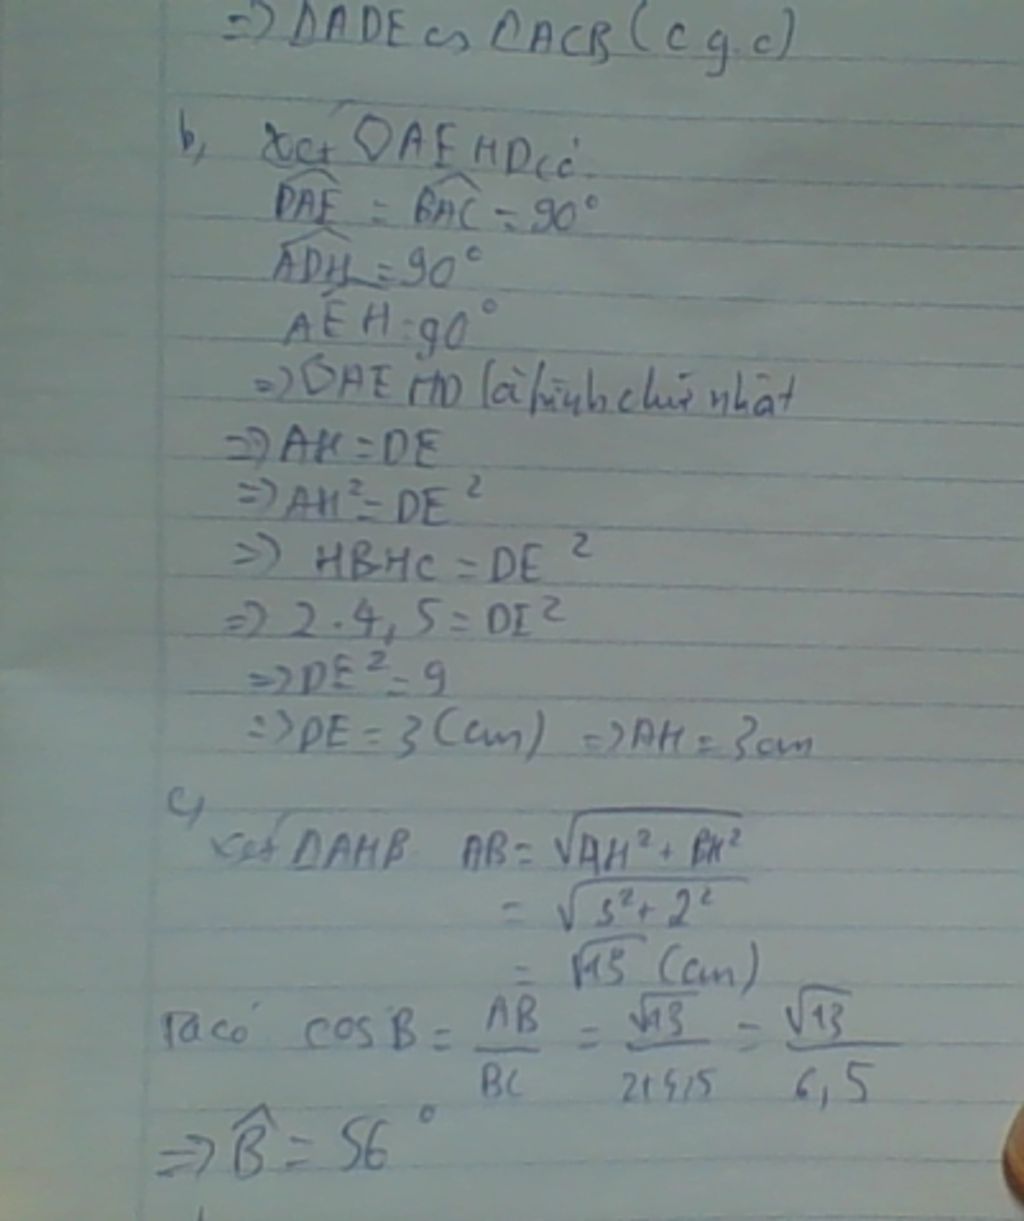 => ΔADE ∽ ΔACB (c g.c)
b, Xét ◇AEHD có
DAE = BAC = 90°
ADH = 90°
AEH = 90°
=> ◇AEHD là hình chữ nhật
=> AH = DE
=> AH² = DE²
=> HB.HC = DE²
=> 2.4,5 = DE²
=> DE² = 9
=> DE = 3 (cm) => AH = 3cm
c,
xét ΔAHB AB = √AH² + BH²
= √3² + 2²
= √13 (cm)
Ta có cosB = AB/BC = √13/2+4,5 = √13/6,5
=> B̂ = 56°